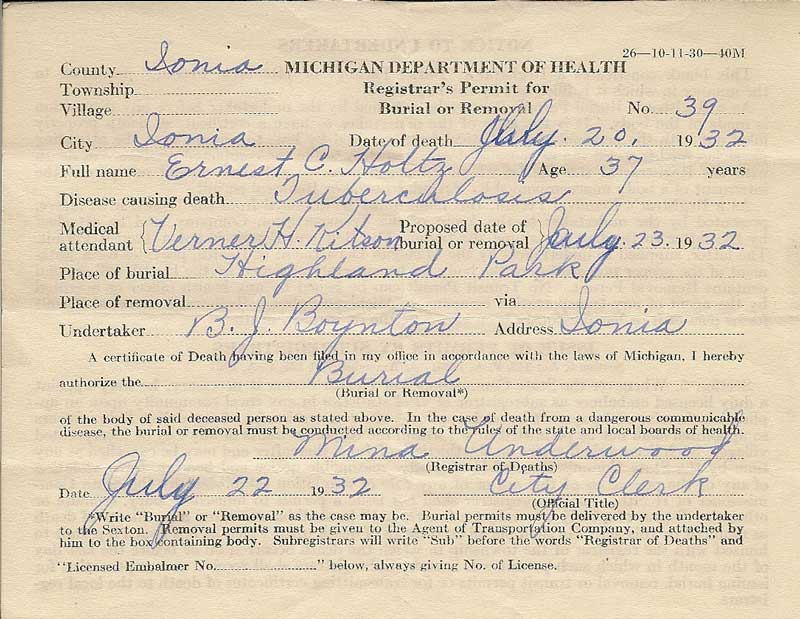 26—10-11-30—40M
County Ionia MICHIGAN DEPARTMENT OF HEALTH
Township Registrar's Permit for
Village Burial or Removal No. 39
City Ionia Date of death July. 20, 1932
Full name Ernest C. Holtz Age 37 years
Disease causing death Tuberculosis
Medical attendant { Verner H. Kitson Proposed date of burial or removal } July. 23. 1932
Place of burial Highland Park
Place of removal via
Undertaker B. J. Boynton Address Ionia
A certificate of Death having been filed in my office in accordance with the laws of Michigan, I hereby
authorize the Burial
(Burial or Removal*)
of the body of said deceased person as stated above. In the case of death from a dangerous communicable
disease, the burial or removal must be conducted according to the rules of the state and local boards of health.
Mina Underwood
(Registrar of Deaths)
Date July 22 1932 City Clerk
(Official Title)
*Write "Burial" or "Removal" as the case may be. Burial permits must be delivered by the undertaker
to the Sexton. Removal permits must be given to the Agent of Transportation Company, and attached by
him to the box containing body. Subregistrars will write "Sub" before the words "Registrar of Deaths" and
"Licensed Embalmer No. " below, always giving No. of License.